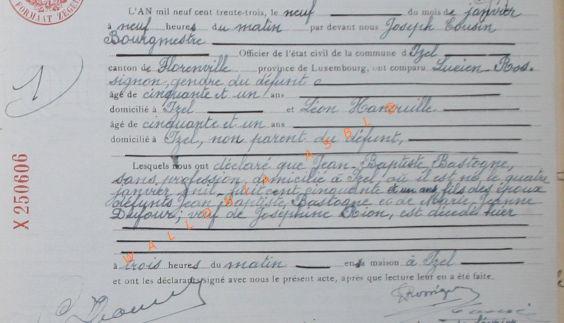 FORMAAT ZEGEL
L'AN mil neuf cent trente-trois, le neuf du mois de janvier
à neuf heures du matin par devant nous Joseph Cousin
Bourgmestre
Officier de l'état civil de la commune d'Izel
canton de Florenville province de Luxembourg, ont comparu Lucien Ros-
signon, gendre du défunt
âgé de cinquante et un ans
domicilié à Izel et Léon
âgé de cinquante et un ans
domicilié à Izel, non parent du défunt,
1
Lesquels nous ont déclaré que Jean-Baptiste Bastogne,
sans profession, domicilié à Izel, où il est né le quatre
janvier mil huit cent cinquante et un ans fils des époux
défunts Jean Baptiste, Bastogne et de Marie Jeanne
Dufour; veuf de Joséphine est décédé hier
X 250606
WALLONIA ASBL
à trois heures du matin en sa maison à Izel
et ont les déclarants signé avec nous le présent acte, après que lecture leur en a été faite.